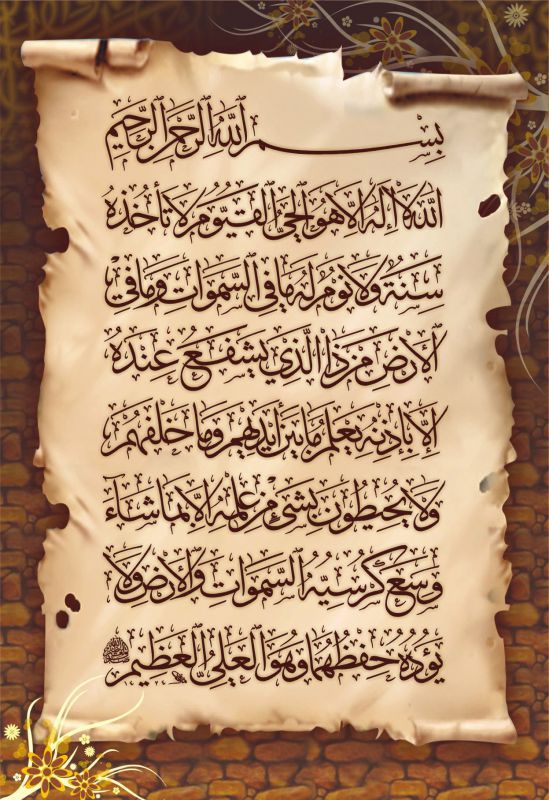 بِسْمِ ٱللَّهِ ٱلرَّحْمَٰنِ ٱلرَّحِيمِ
ٱللَّهُ لَا إِلَٰهَ إِلَّا هُوَ ٱلْحَيُّ ٱلْقَيُّومُ لَا تَأْخُذُهُ
سِنَةٌ وَلَا نَوْمٌ لَهُ مَا فِي ٱلسَّمَٰوَاتِ وَمَا فِي
ٱلْأَرْضِ مَنْ ذَا ٱلَّذِي يَشْفَعُ عِنْدَهُ
إِلَّا بِإِذْنِهِ يَعْلَمُ مَا بَيْنَ أَيْدِيهِمْ وَمَا خَلْفَهُمْ
وَلَا يُحِيطُونَ بِشَيْءٍ مِنْ عِلْمِهِ إِلَّا بِمَا شَاءَ
وَسِعَ كُرْسِيُّهُ ٱلسَّمَٰوَاتِ وَٱلْأَرْضَ وَلَا
يَؤُدُهُ حِفْظُهُمَا وَهُوَ ٱلْعَلِيُّ ٱلْعَظِيمُ